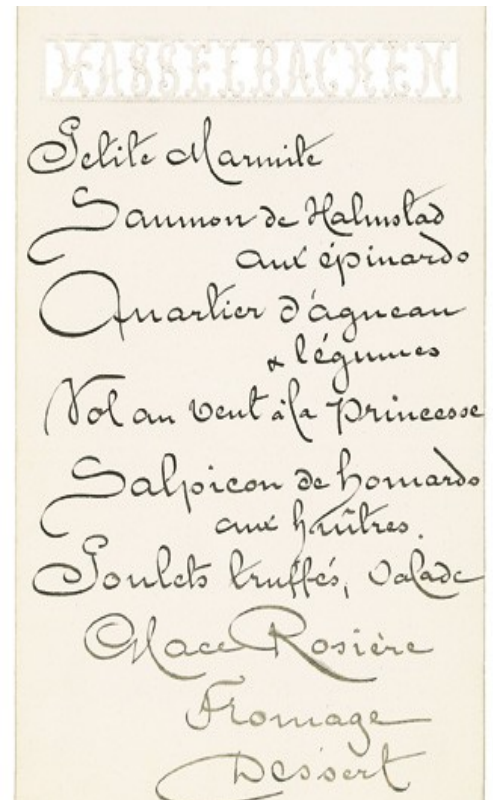 HASSELBACKEN
Petite Marmite
Saumon de Halmstad
aux épinards
Quartier d'agneau
& légumes
Vol au vent à la Princesse
Salpicon de homards
aux huîtres.
Poulets truffés, Salade
Glace Rosière
Fromage
Dessert